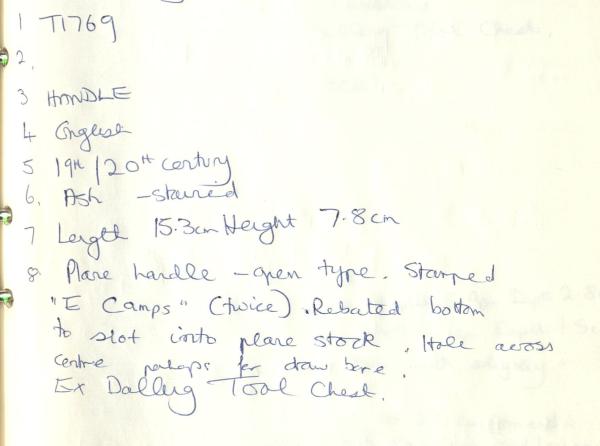 1 T1769
2.
3 HANDLE
4 English
5 19th / 20th century
6. Ash - stained
7 Length 15.3cm Height 7.8cm
8 Plane handle - open type. Stamped
"E Camps" (twice). Rebated bottom
to slot into plane stock. Hole across
centre perhaps for draw bore.
Ex Tool Chest.